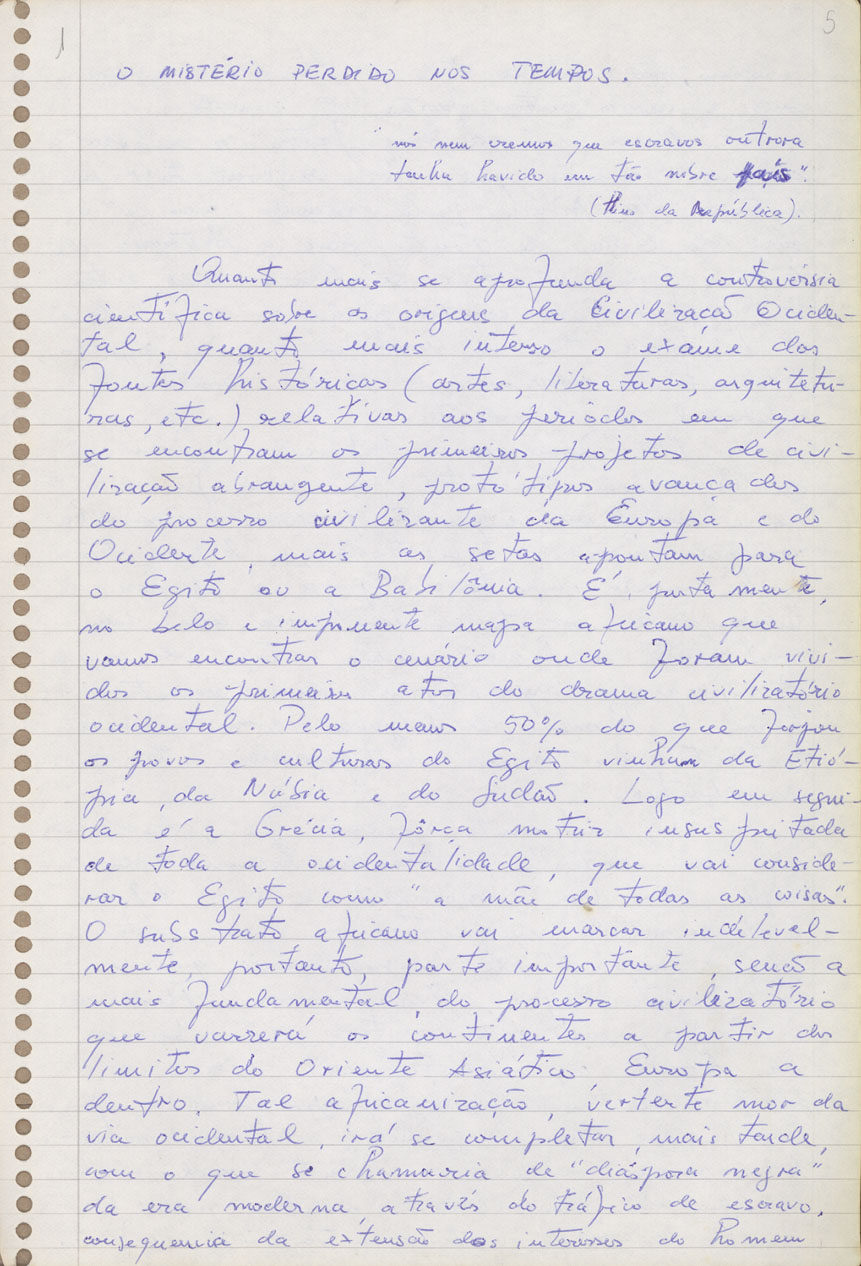 1
5
O MISTÉRIO PERDIDO NOS TEMPOS.
"nós nem cremos que escravos outrora
tenha havido em tão nobre país".
(Hino da República).
Quanto mais se aprofunda a controvérsia
científica sobre as origens da Civilização Ociden-
tal, quanto mais intenso o exáme das
fontes históricas (artes, literaturas, arquitetu-
ras, etc.) relativas aos períodos em que
se encontram os primeiros projetos de civi-
lização abrangente, protótipos avançados
do processo civilizante da Europa e do
Ocidente, mais as setas apontam para
o Egito ou a Babilônia. É, justamente,
no belo e imponente mapa africano que
vamos encontrar o cenário onde foram vivi-
dos os primeiros atos do drama civilizatório
ocidental. Pelo menos 50% do que forjou
os povos e culturas do Egito vinham da Etió-
pia, da Núbia e do Sudão. Logo em segui-
da é a Grécia, fôrça motriz insuspeitada
de toda a ocidentalidade, que vai conside-
rar o Egito como "a mãe de todas as coisas".
O substrato africano vai marcar indelevel-
mente, portanto, parte importante, senão a
mais fundamental, do processo civilizatório
que varrerá os continentes a partir dos
limites do Oriente Asiático Europa a
dentro. Tal africanização, vertente mor da
via ocidental, irá se completar, mais tarde,
com o que se chamaria de "diáspora negra"
da era moderna, através do tráfico de escravo,
consequencia da extensão dos interesses do homem